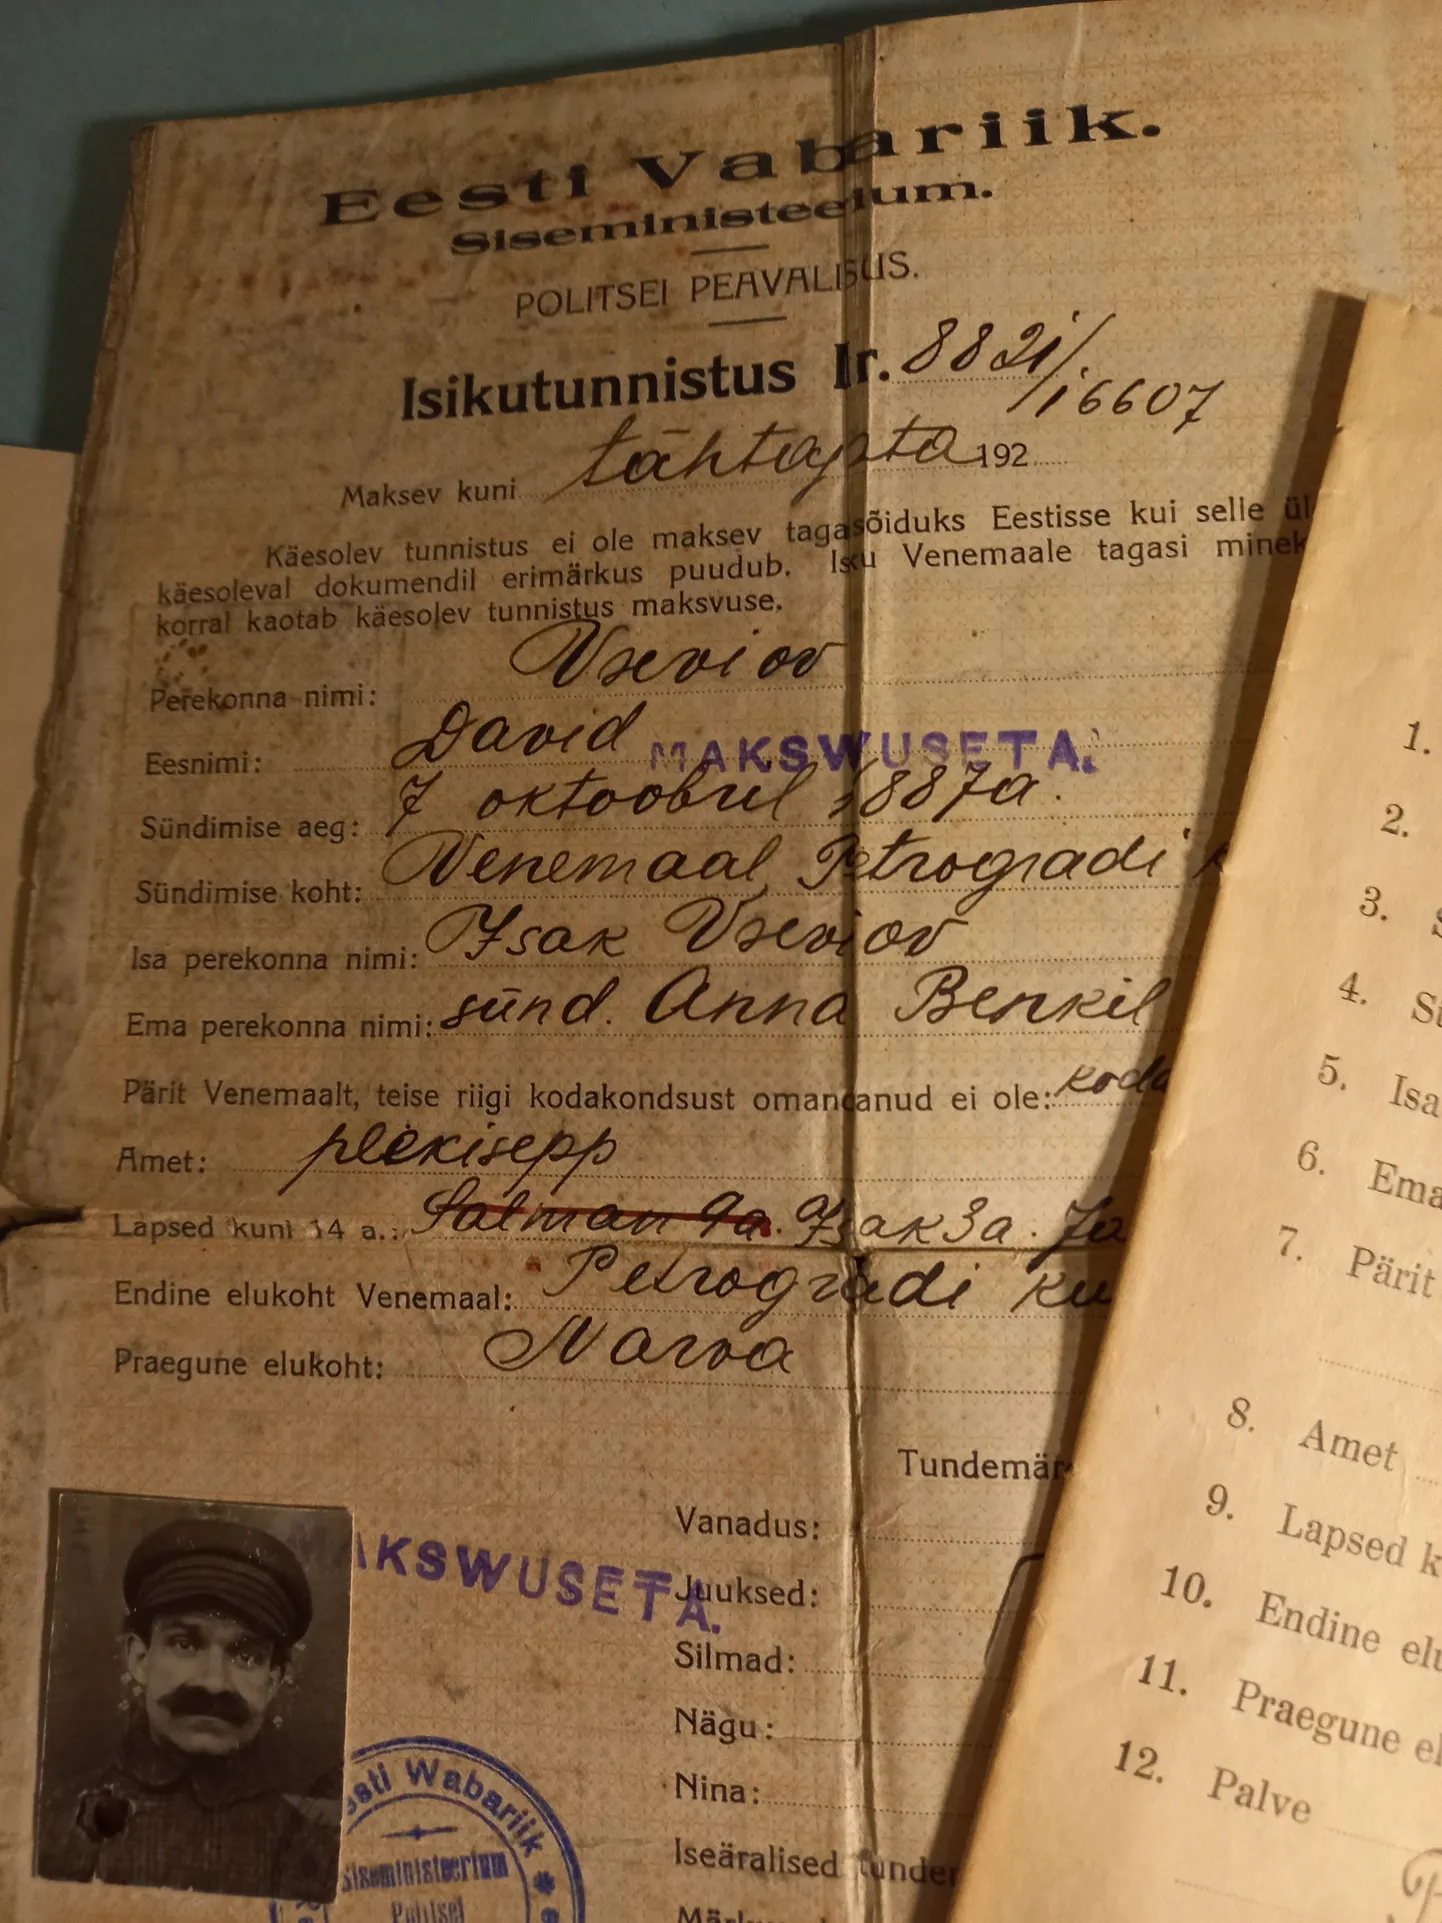 Eesti Vabariik.
Siseministeerium.
POLITSEI PEAVALISUS.
Isikutunnistus Nr. 8821/16607
Maksev kuni tähtajata 192
Käesolev tunnistus ei ole maksev tagasõiduks Eestisse kui selle ül
käesoleval dokumendil erimärkus puudub. Isku Venemaale tagasi minek
korral kaotab käesolev tunnistus maksvuse.
Perekonna nimi: Vseviov
Eesnimi: David
MAKSWUSETA.
Sündimise aeg: 7 oktoobril 1887a.
Sündimise koht: Venemaal, Petrogradi k
Isa perekonna nimi: Isak Vseviov
Ema perekonna nimi: sünd. Anna Benkil
Pärit Venemaalt, teise riigi kodakondsust omandanud ei ole: koda
Amet: plekisepp
Lapsed kuni 14 a.: Salman 9a. Isak 3a.
Endine elukoht Venemaal: Petrogradi ku
Praegune elukoht: Narva
Tundemär
MAKSWUSETA.
Vanadus:
Juuksed:
Silmad:
Nägu:
Nina:
Iseäralised tunder
Märku
Eesti Wabariik
Siseministeerium
Politsei
1.
2.
3. S
4. Sü
5. Isa
6. Ema
7. Pärit
8. Amet
9. Lapsed k
10. Endine elu
11. Praegune el
12. Palve